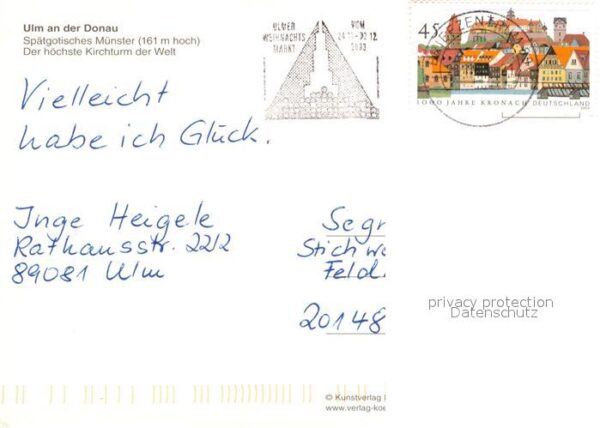 Ulm an der Donau
Spätgotisches Münster (161 m hoch)
Der höchste Kirchturm der Welt
ULMER VOM
WEIHNACHTS
MARKT
45
1000 JAHRE KRONACH DEUTSCHLAND
Vielleicht
habe ich Glück.
Inge Heigele
Rathausstr. 22/2
89081 Ulm
Segr
Stich
Feld
20148
privacy protection
Datenschutz
© Kunstverlag
www.verlag-koe